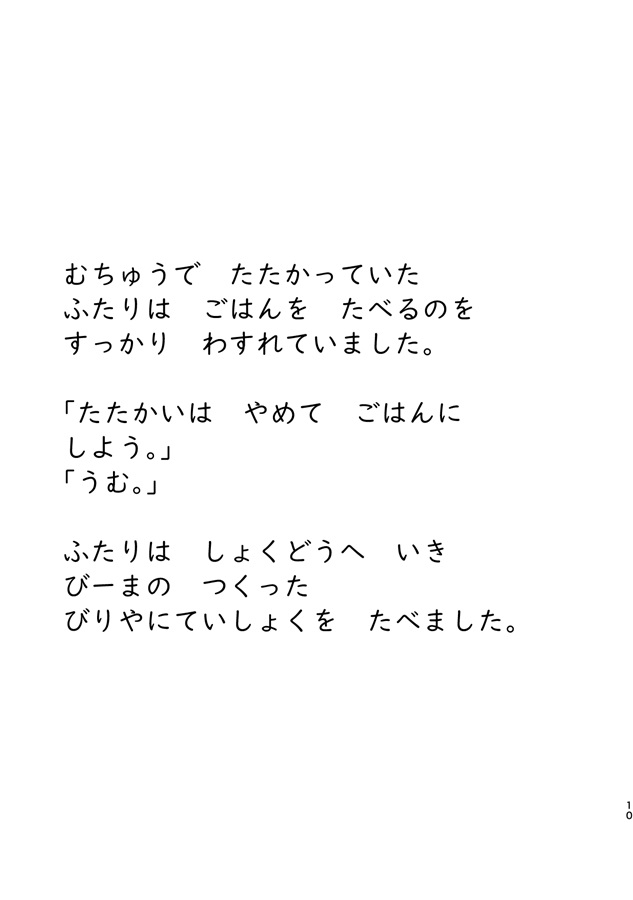 むちゅうで　たたかっていた
ふたりは　ごはんを　たべるのを
すっかり　わすれていました。
「たたかいは　やめて　ごはんに
しよう。」
「うむ。」
ふたりは　しょくどうへ　いき
びーまの　つくった
びりやにていしょくを　たべました。
10